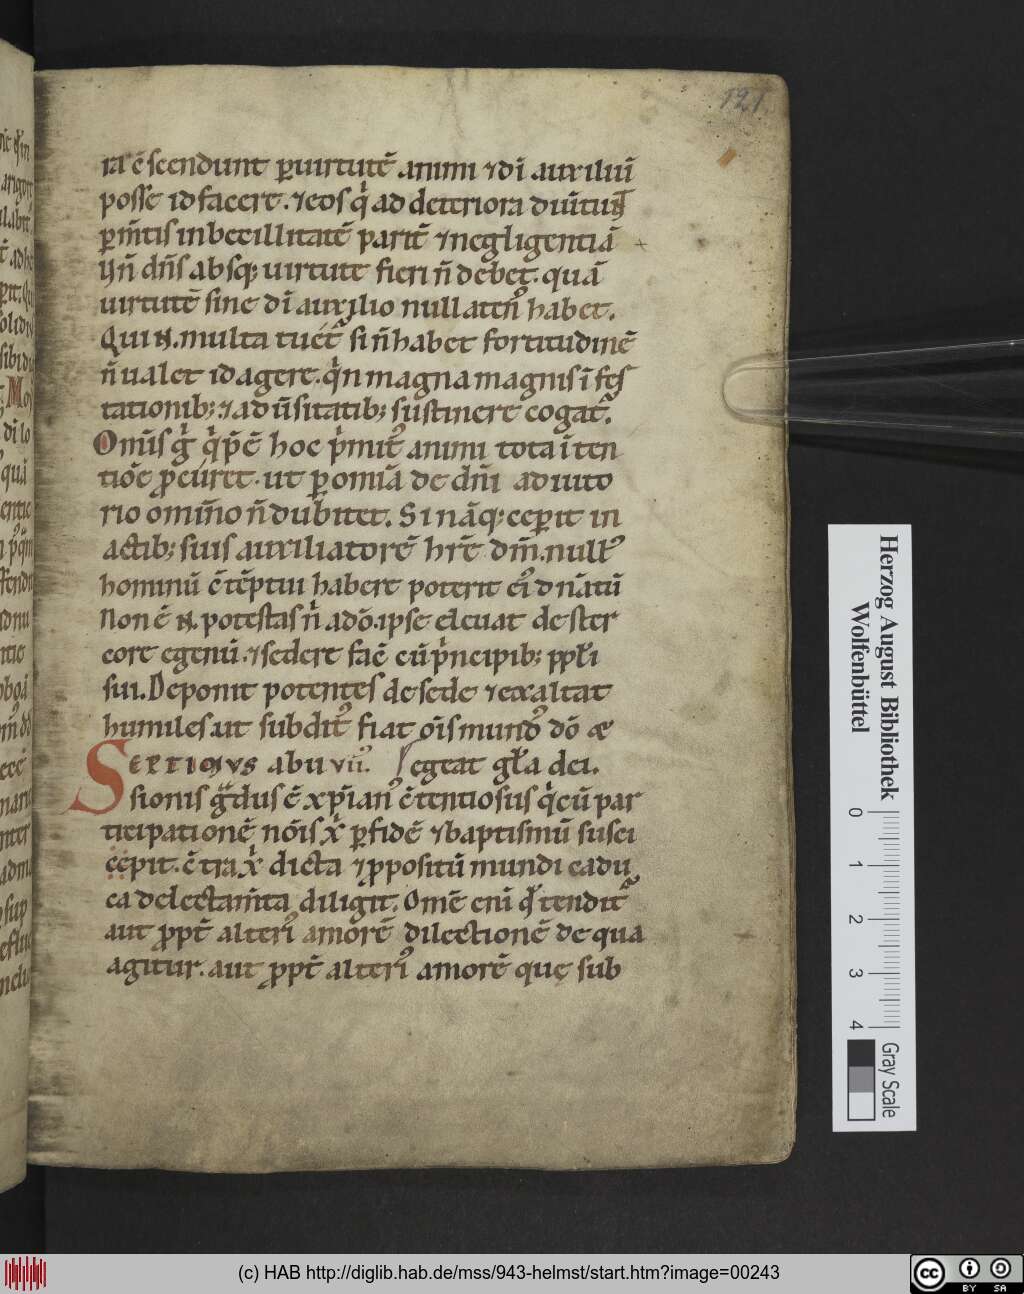 121
ra ē scendunt ꝑ uirtutē animi ⁊ di auxiliū
posse id facere. ⁊ eos q̇ ad deteriora diuītuꝛ
ꝑ m̄tis inbecillitatē parit̄ ⁊ negligentiā
dn̄s absq; uirtute fieri n̄ debet. quā
uirtutē sine dī auxilio nullaten᾽ habet.
Qui N. multa si n̄ habet fortitudinē
n̄ ualet id agere. q̇n magna magnis īfes
tationib; ⁊ ad ūsitatib; sustinere cogat᷑.
Om̄is g̊ q̇ p̄ē hoc p̄mit᾽ animi tota īten
tiōe ꝓcuret. ut ꝑ omīa de dn̄i adiuto
rio omīno n̄ dubitet. Si nāq; ceꝑit in
actib; suis auxiliatorē hr̄e dm̄. null᾽
hominū ētēptui habere poterit dnātū
Non ē N. potestas n̄ a dō. ipse eleuat de ster
core egenū. ⁊ sedere facē cū p̄ncipib; ppl̄i
sui. Deponit potentes de sede ⁊ exaltat
humiles. ut subdit᾽ fiat om̄is mund᾽ dō ⁊
SERTIOMVS abu vii᾽. egeat gl̄a dei.
sionis g̊dus ē xp̄ian᾽ ētentiosus q̇ cū par
ticipationē nōīs xp̄i ꝑ fidē ⁊ baptismū susci
ceꝑit. ētra xp̄i dicta ⁊ ppositū mundi cadu
ca delectam̄ta diligit. Omē enī qd̄ tendit᷑
aut ꝓpt̄ alteri᾽ amorē dilectionē de qua
agitur. aut ꝓpt̄ alteri᾽ amorē quę sub
Herzog August Bibliothek
Wolfenbüttel
0 1 2 3 4
Gray Scale
(c) HAB http://diglib.hab.de/mss/943-helmst/start.htm?image=00243
cc BY SA